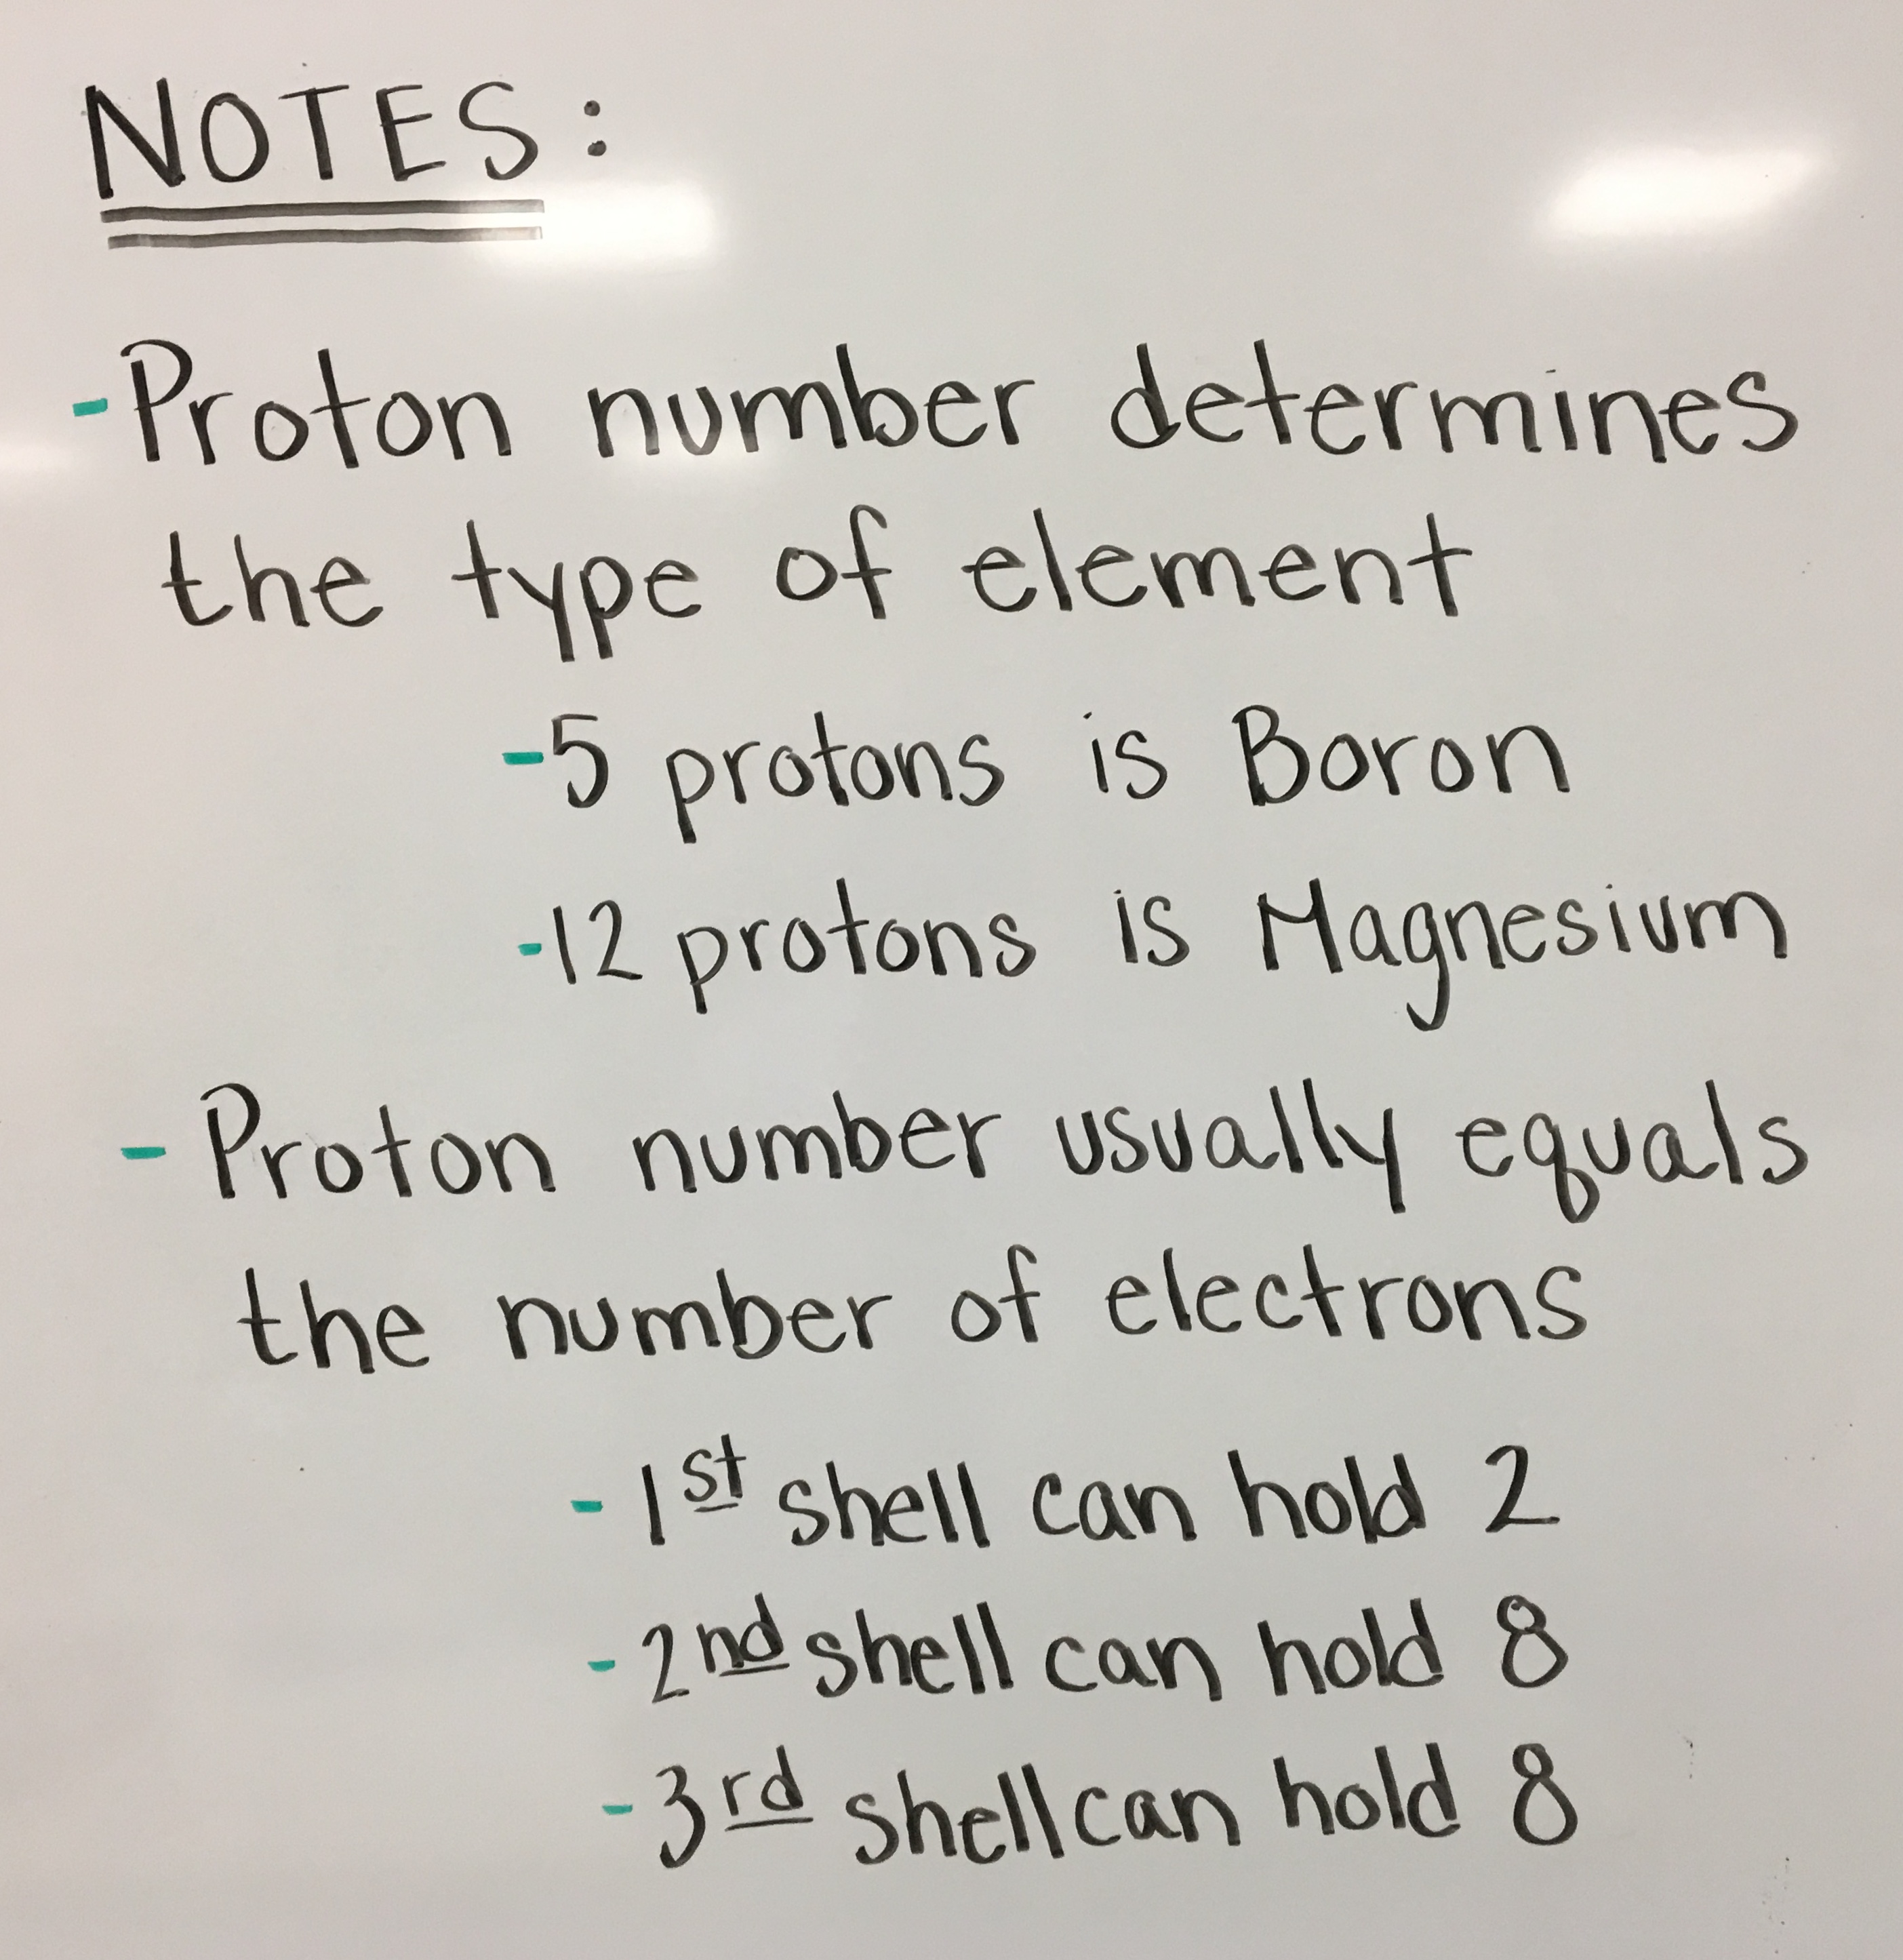 NOTES:
-Proton number determines
the type of element
-5 protons is Boron
-12 protons is Magnesium
- Proton number usually equals
the number of electrons
- 1st shell can hold 2
- 2nd shell can hold 8
- 3rd shell can hold 8